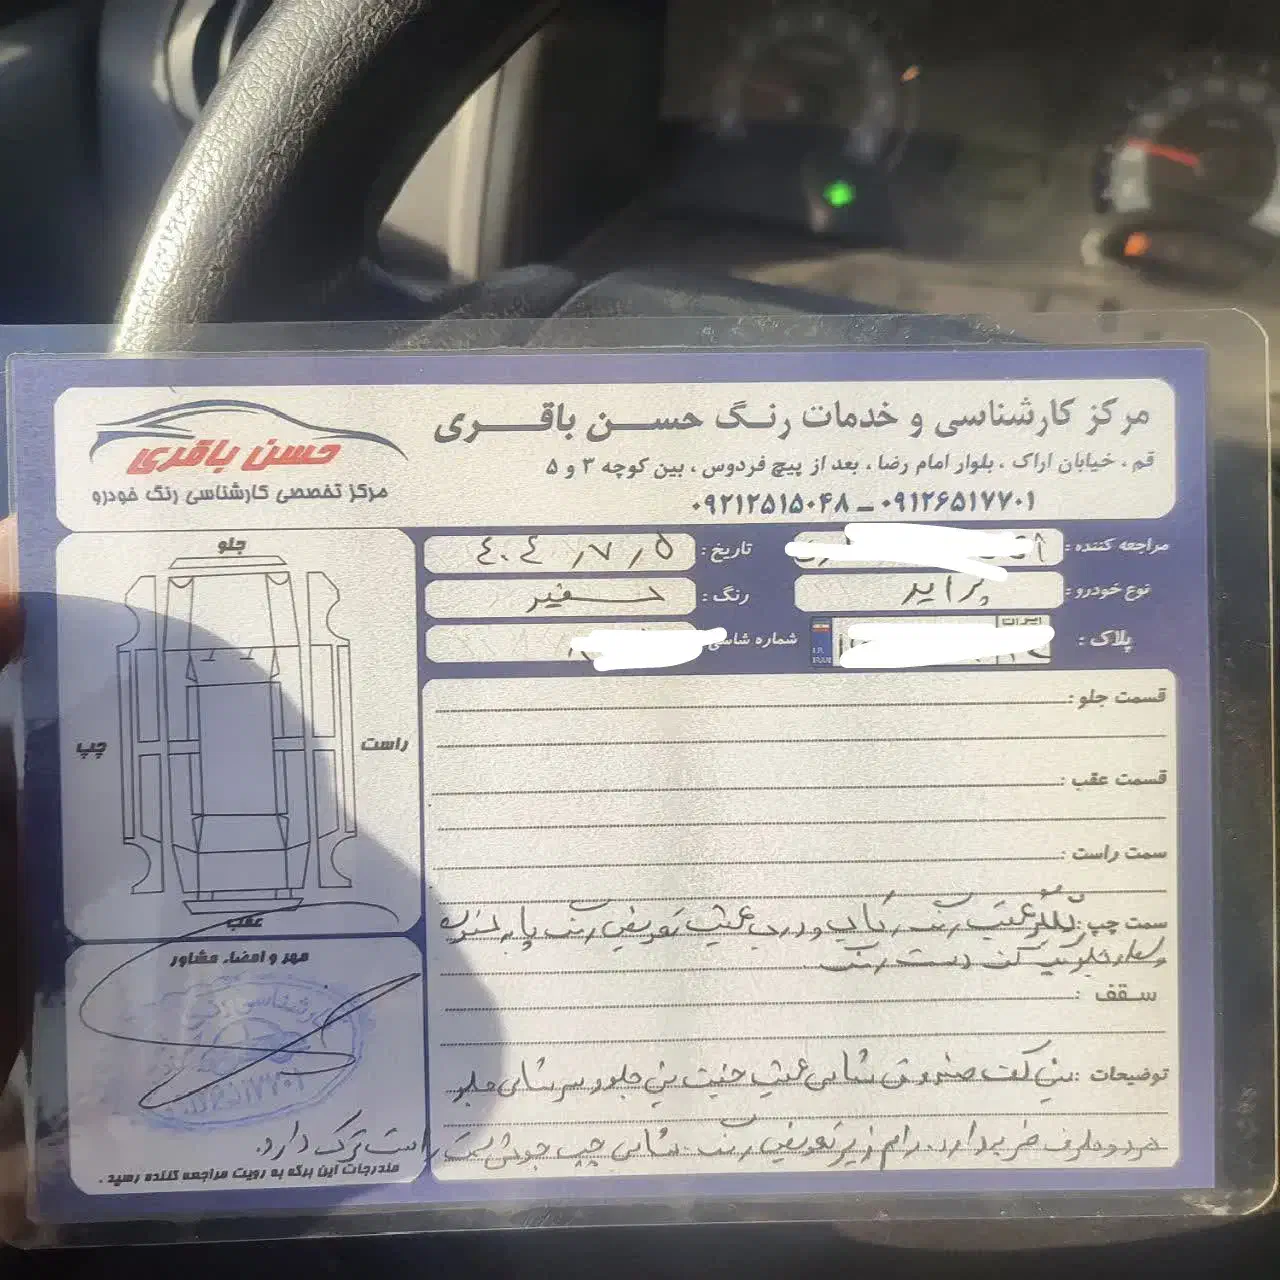 مرکز کارشناسی و خدمات رنگ حسن باقری
قم ، خیابان اراک ، بلوار امام رضا ، بعد از پیچ فردوس ، بین کوچه ۳ و ۵
۰۹۱۲۶۵۱۷۷۰۱ ـ ۰۹۲۱۲۵۱۵۰۴۸
حسن باقری
مرکز تخصصی کارشناسی رنگ خودرو
مراجعه کننده :
تاریخ : ۴۰۴/۷/۵
نوع خودرو : پراید
رنگ : سفید
پلاک : ایران
I.R.
IRAN
شماره شاسی
جلو
راست
چپ
عقب
قسمت جلو :
قسمت عقب :
سمت راست :
سمت چپ : گلگیر عقب رنگ رکاب و درب عقب تعویض رنگ پا به ستون
و گلگیر جلو یک کف دست رنگ
سقف :
توضیحات : سینی کف صندوق شاسی عقب سینی جلو و سر شاسی جلو
هر دو طرف ضربه دارد. رام زیر تعویض رنگ. شاسی چپ جوش پشت راست ترک دارد.
مهر و امضاء مشاور
مندرجات این برگه به رویت مراجعه کننده رسید .